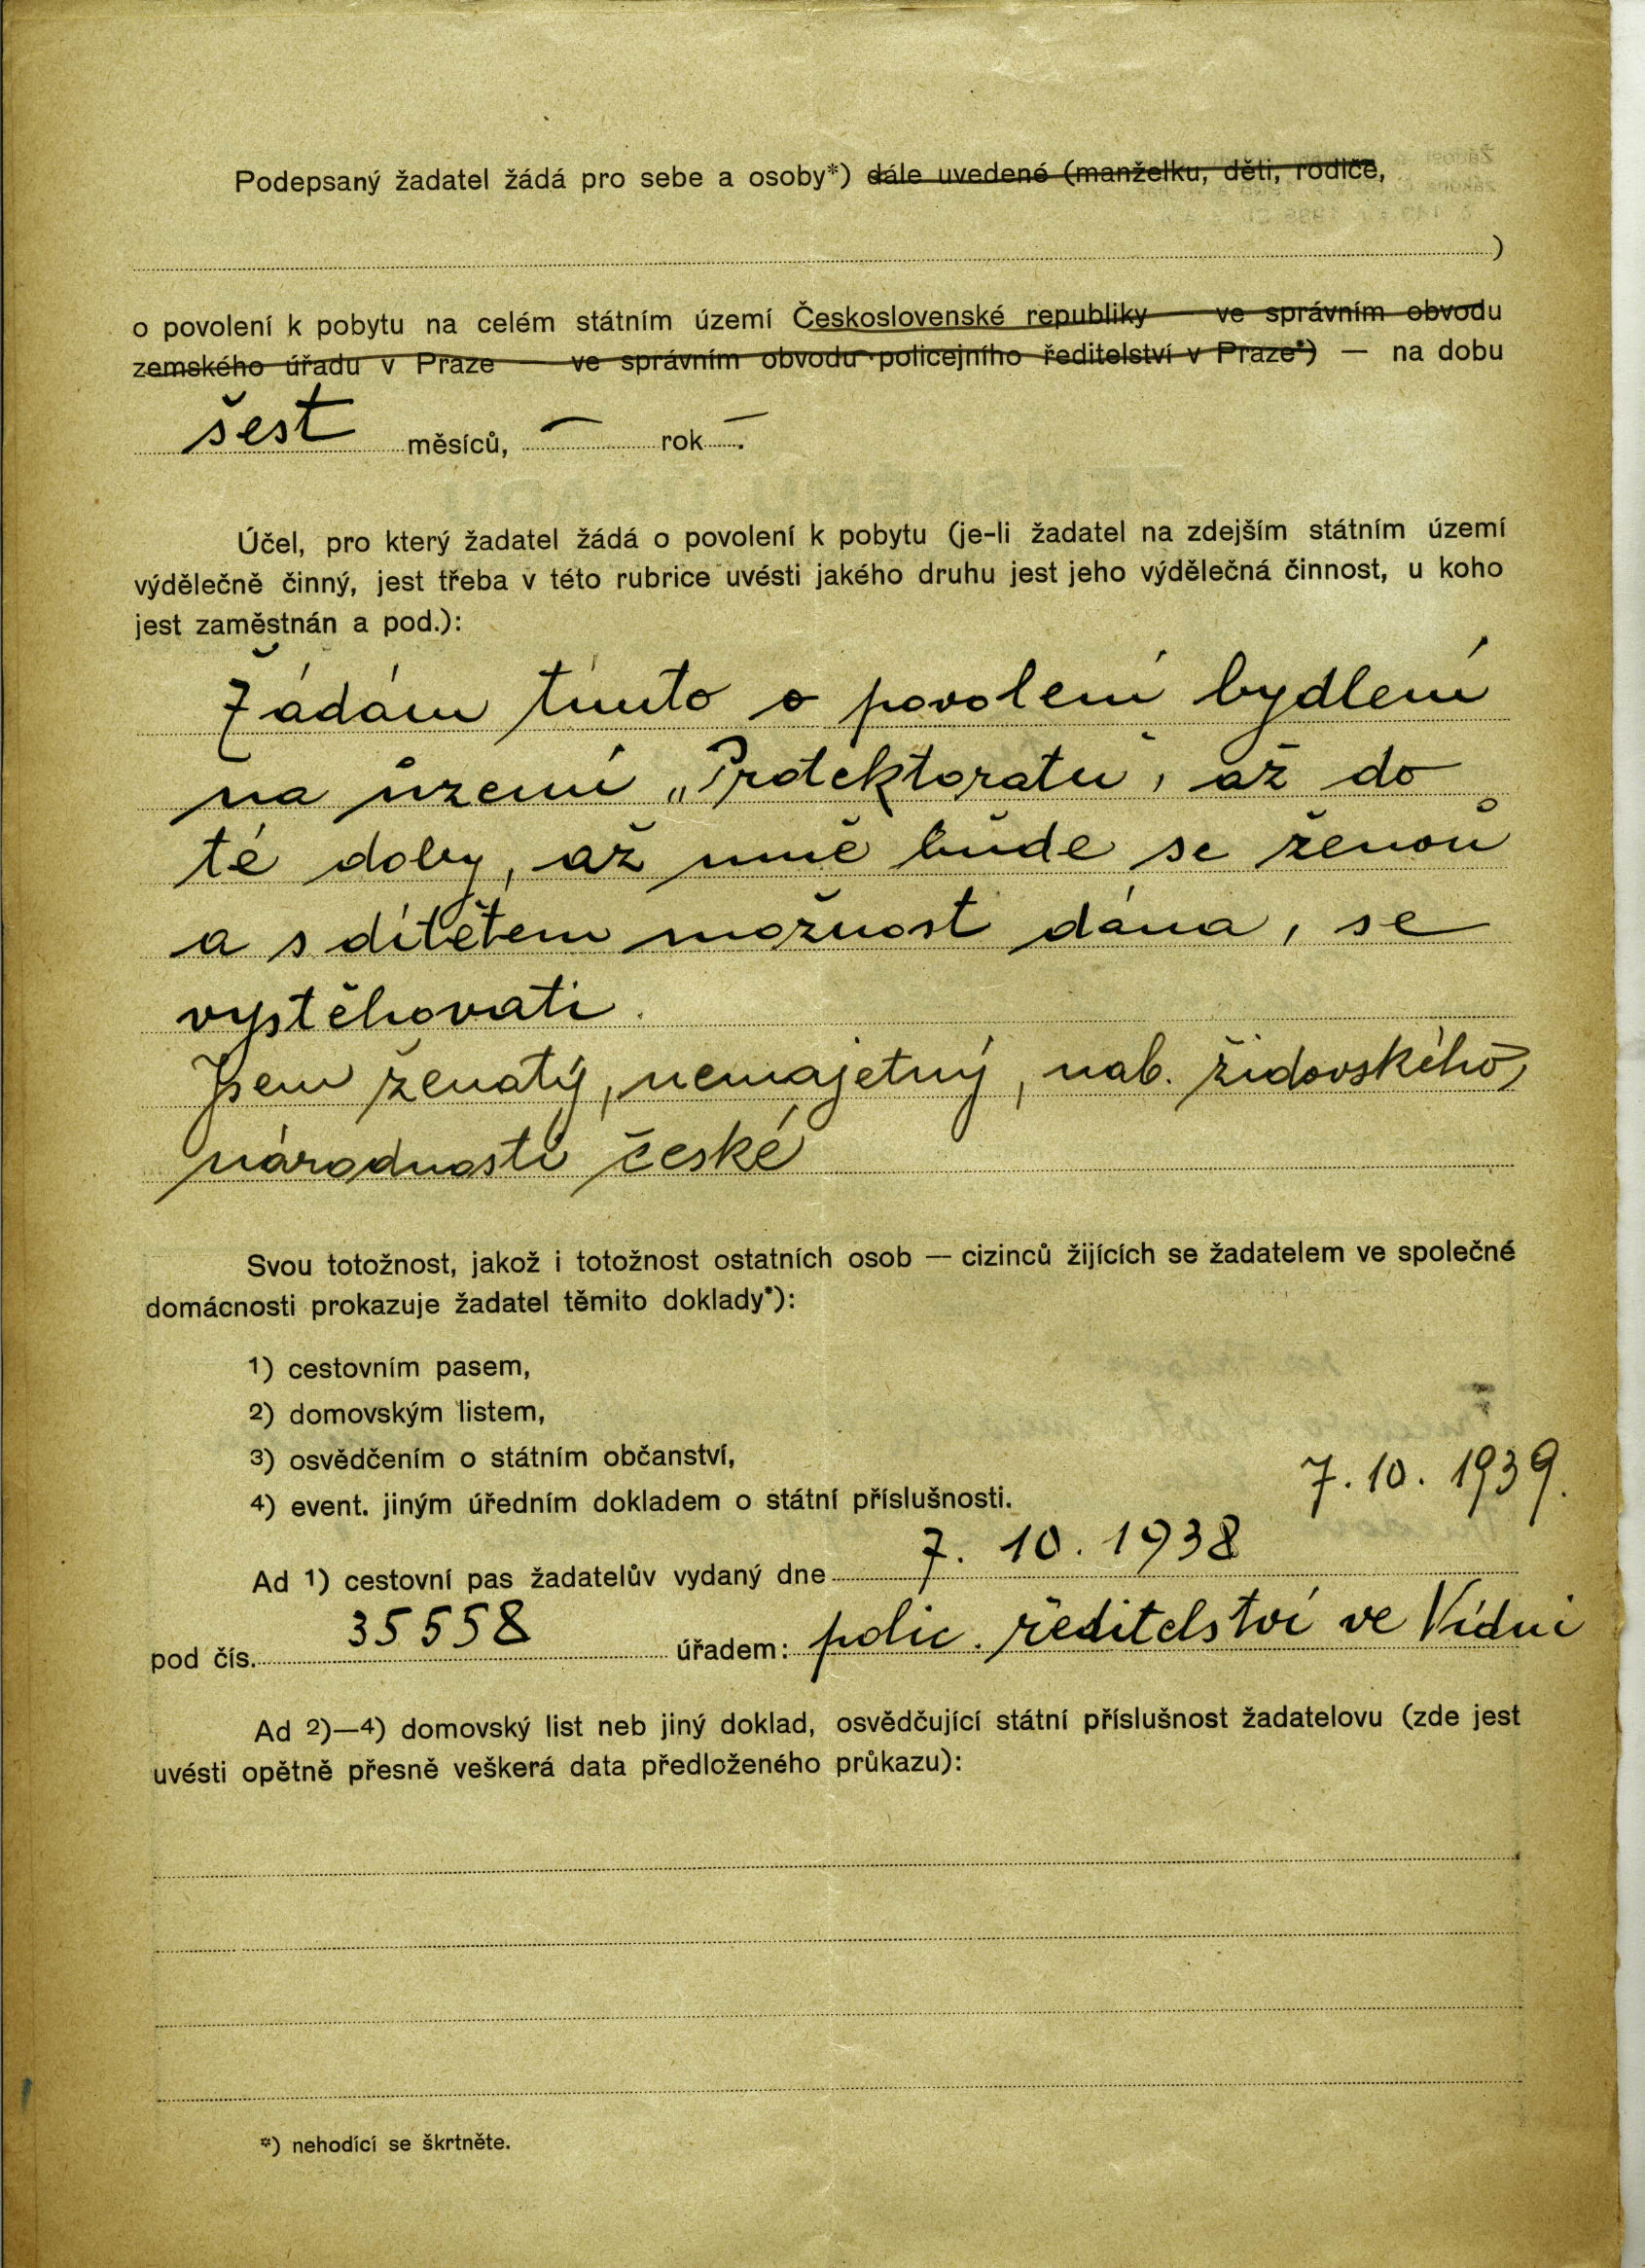 Podepsaný žadatel žádá pro sebe a osoby*) dále uvedené (manželku, děti, rodiče,
)
o povolení k pobytu na celém státním území Československé republiky — ve správním obvodu
zemského úřadu v Praze — ve správním obvodu policejního ředitelství v Praze*) — na dobu
šest měsíců, — rok —.
Účel, pro který žadatel žádá o povolení k pobytu (je-li žadatel na zdejším státním území
výdělečně činný, jest třeba v této rubrice uvésti jakého druhu jest jeho výdělečná činnost, u koho
jest zaměstnán a pod.):
Žádám tímto o povolení bydlení
na území „Protektoratu", až do
té doby, až mně bude se ženou
a s dítětem možnost dána, se
vystěhovati.
Jsem ženatý, nemajetný, nab. židovského,
národnosti české
Svou totožnost, jakož i totožnost ostatních osob — cizinců žijících se žadatelem ve společné
domácnosti prokazuje žadatel těmito doklady*):
1) cestovním pasem,
2) domovským listem,
3) osvědčením o státním občanství,
4) event. jiným úředním dokladem o státní příslušnosti.
7. 10. 1939.
Ad 1) cestovní pas žadatelův vydaný dne 7. 10. 1938
pod čís. 35558 úřadem: polic. ředitelství ve Vídni
Ad 2)—4) domovský list neb jiný doklad, osvědčující státní příslušnost žadatelovu (zde jest
uvésti opětně přesně veškerá data předloženého průkazu):
*) nehodící se škrtněte.